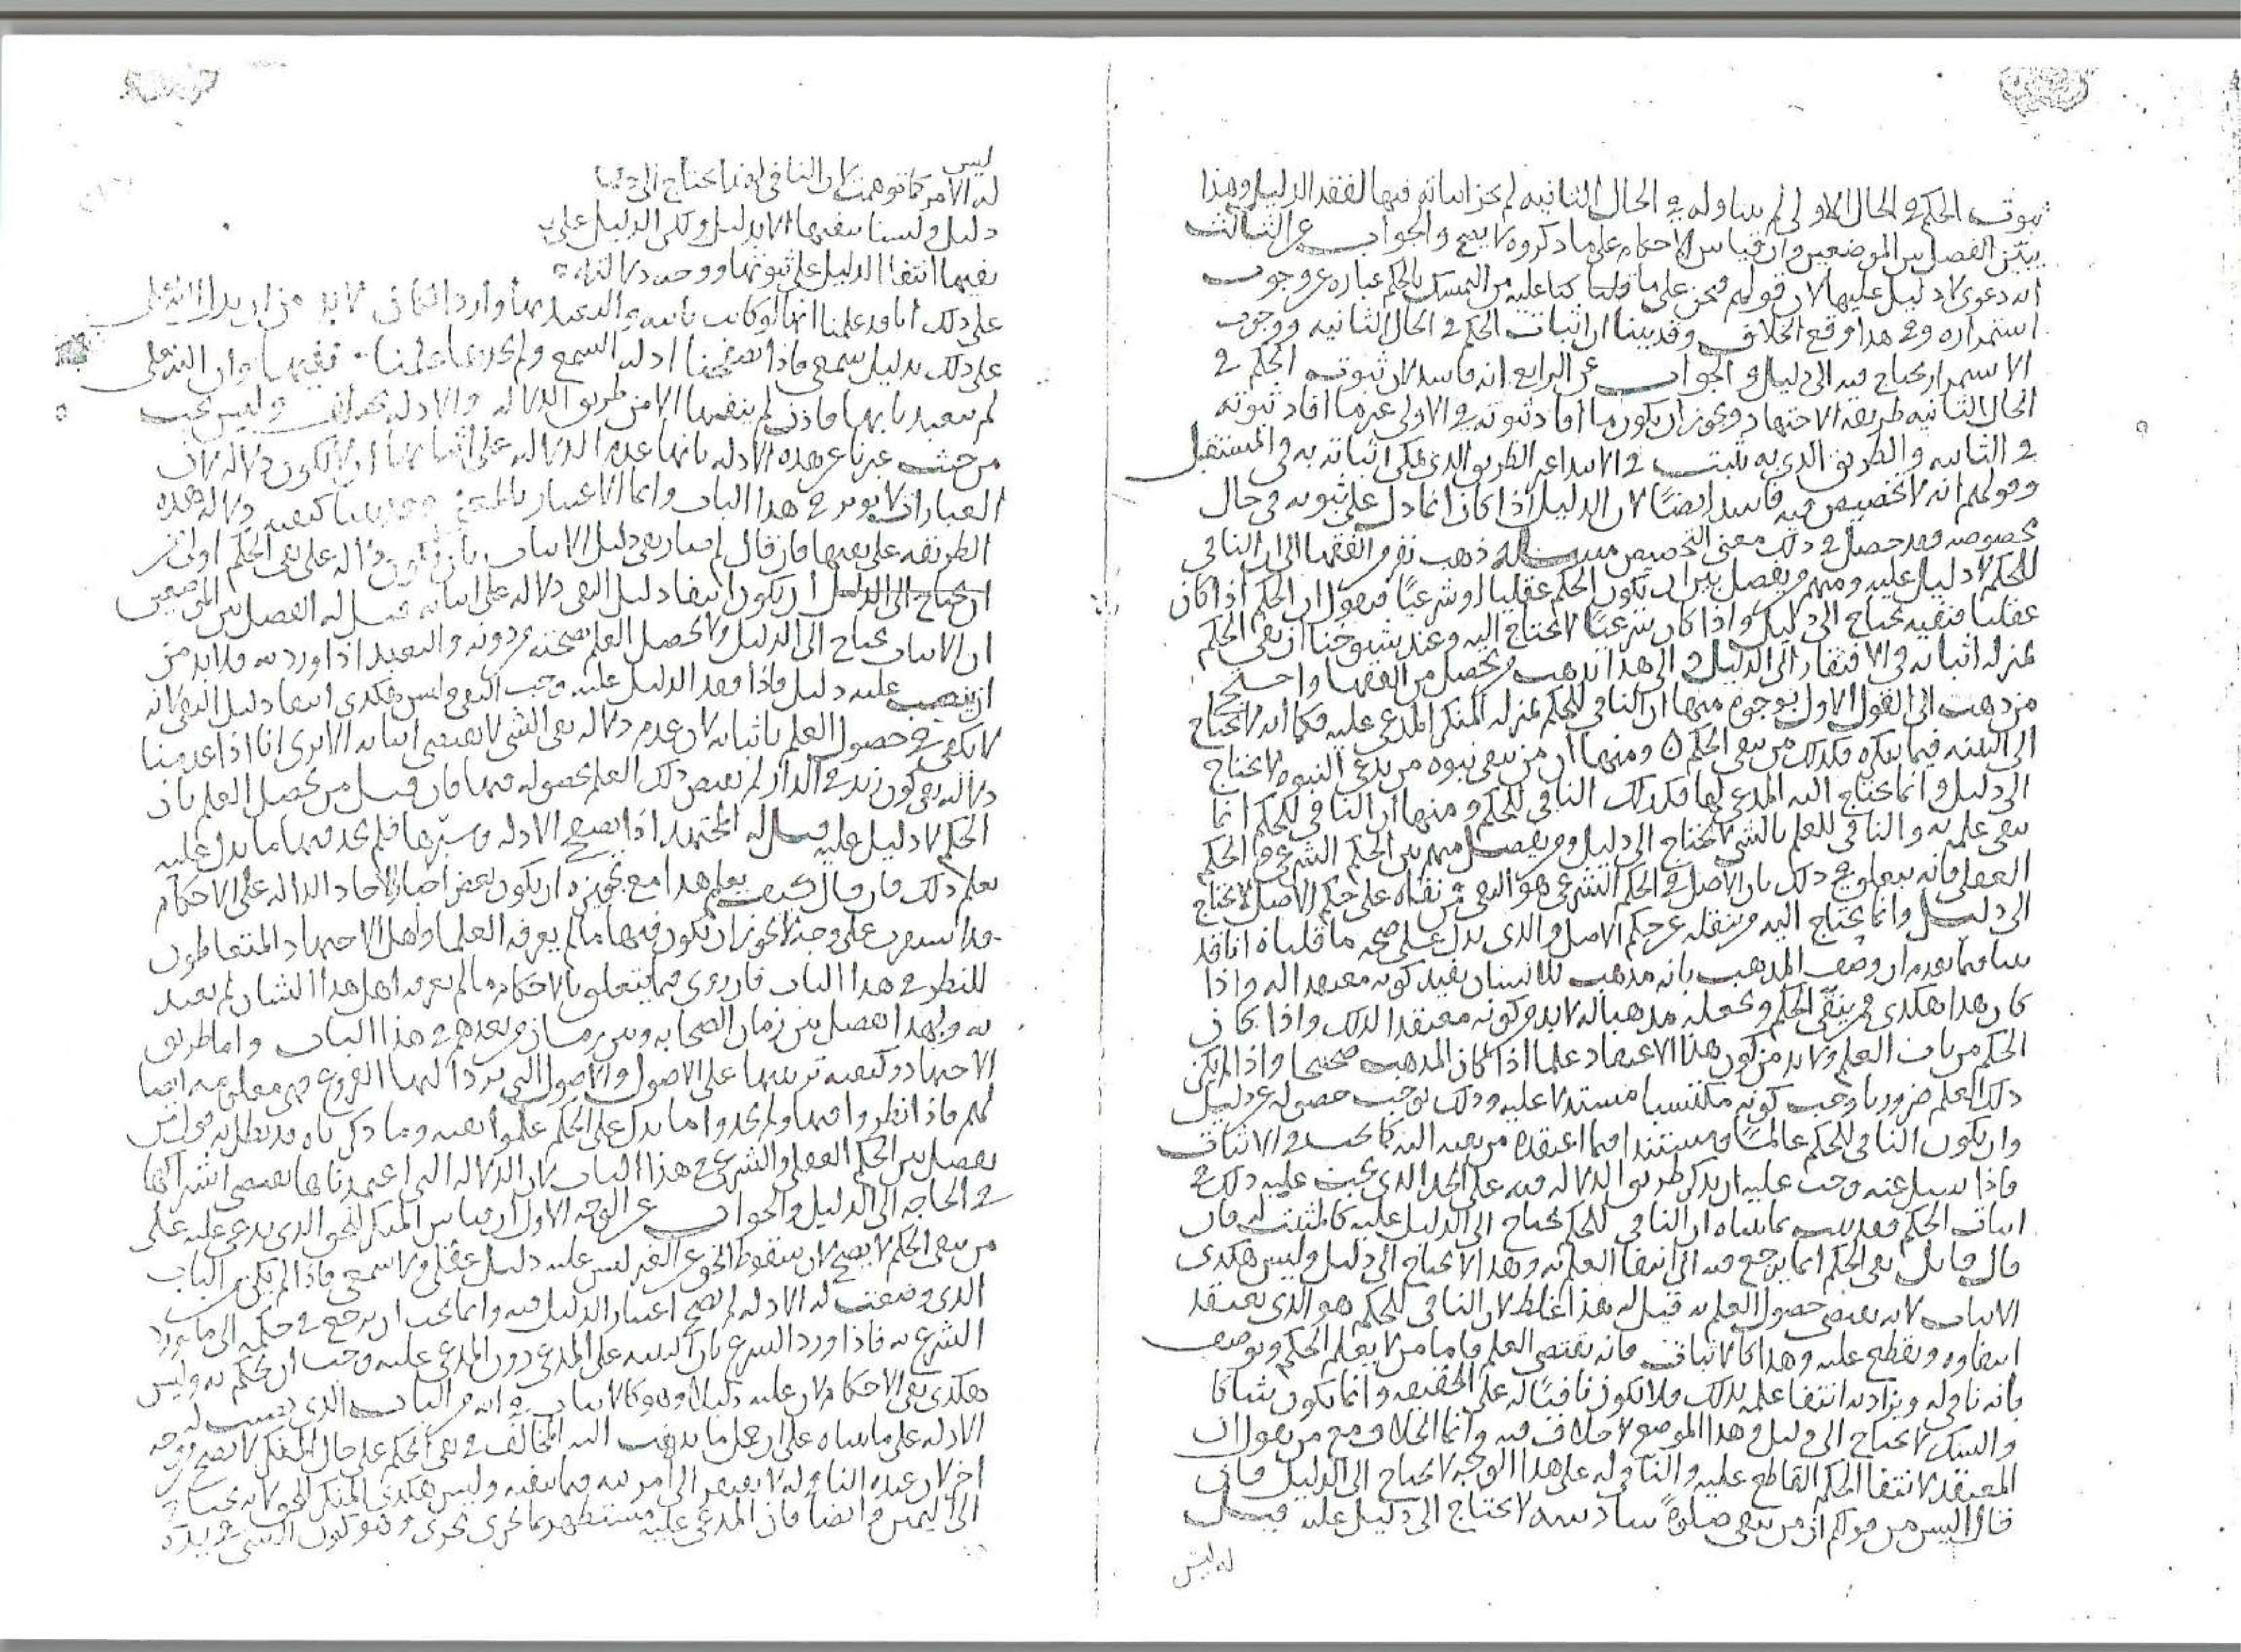 ثبوت الحكم في الحال الاولى لم يتناوله في الحال الثانيه لم يجز اثباته فيها لفقد الدليل وهذا
يبين الفصل بين الموضعين وان قياس الاحكام على ما ذكروه لا يصح والجواب عن الثالث
انه دعوى لا دليل عليها لان قولهم نحن على ما كنا عليه من التمسك بالحكم عباره عن وجوب
استمراره وفي هذا وقع الخلاف وقد بينا ان اثبات الحكم في الحال الثانيه ووجوب
الاستمرار يحتاج فيه الى دليل والجواب عن الرابع انه فاسد لان ثبوت الحكم في
الحال الثانيه طريقه الاجتهاد ويجوز ان يكون ما افاد ثبوته في الاولى غير ما افاد ثبوته
في الثانيه والطريق الذي به يثبت في الابتدا غير الطريق الذي يمكن اثباته به في المستقبل
وقولهم انه لا تخصيص فيه فاسد ايضًا لان الدليل اذا كان انما دل على ثبوته في حال
مخصوصه فقد حصل في ذلك معنى التخصيص مسـله ذهب نفر من الفقها الى ان النافي
للحكم لا دليل عليه ومنهم من يفصل بين ان يكون الحكم عقليا او شرعيًا فيقول ان الحكم اذا كان
عقليا فنفيه يحتاج الى دليل واذا كان شرعيًا لا يحتاج اليه وعند شيوخنا ان نفي الحكم
بمنزله اثباته في الافتقار الى الدليل والى هذا يذهب من يحصل من الفقها واحتج
من ذهب الى القول الاول بوجوه منها ان النافي للحكم بمنزله المنكر المدعى عليه فكما انه لا يحتاج
الى البينه فيما ينكره فكذلك من نفى الحكم ومنها ان من ينفي نبوه من يدعي النبوه لا يحتاج
الى دليل وانما يحتاج اليه المدعي لها فكذلك النافي للحكم ومنها ان النافي للحكم انما
نفى علمه به والنافي للعلم بالشي لا يحتاج الى دليل ومن يفصل منهم بين الحكم الشرعي والحكم
العقلي فانه يتعلق في ذلك بان الاصل في الحكم الشرعي هو النفي فمن نفاه على حكم الاصل لا يحتاج
الى دليل وانما يحتاج اليه من ينقله عن حكم الاصل والذي يدل على صحه ما قلناه انا قد
بينا فيما تقدم ان وصف المذهب بانه مذهب للانسان يفيد كونه معتقدا له واذا
كان هذا هكذى فمن ينفي الحكم ويجعله مذهبا له لا بد من كونه معتقدا لذلك واذا كان
الحكم من باب العلم ولا بد من كون هذا الاعتقاد علما اذا كان المذهب صحيحا واذا لم يكن
ذلك العلم ضروريا وجب كونه مكتسبا مستدلا عليه وذلك يوجب حصوله عن دليل
وان يكون النافي للحكم عالمًا مستندا فيما اعتقده من نفيه اليه كما يجب في الاثبات
فاذا سئل عنه وجب عليه ان يذكر طريق الدلاله فيه على الحد الذي يجب عليه ذلك في
اثبات الحكم فقد ثبت بما بيناه ان النافي للحكم يحتاج الى الدليل عليه كالمثبت له فان
قال قائل نفي الحكم انما يرجع فيه الى انتفا العلم به وهذا لا يحتاج الى دليل وليس هكذى
الاثبات لانه يقتضي حصول العلم به قيل له هذا غلط لان النافي للحكم هو الذي يعتقد
انتفاوه ويقطع عليه وهذا كالاثبات فانه يقتضي العلم فاما من لا يعلم الحكم ويوصف
بانه ناف له ويراد به انتفا علمه بذلك فلا يكون نافيًا له على الحقيقه وانما يكون شاكا
والشك لا يحتاج الى دليل وهذا الموضع لا خلاف فيه وانما الخلاف مع من يقول ان
المعتقد لانتفا الحكم القاطع عليه والنافي له على هذا الوجه لا يحتاج الى الدليل فان
قال اليس من قولكم ان من ينفي صلوةً سادسه لا يحتاج الى دليل عليه قيل
له ليس
ليس
له الامر كما توهمت لان النافي لها يحتاج الى
دليل ولسنا ننفيها الا بدليل ولكن الدليل على
نفيها انتفا الدليل على ثبوتها
على ذلك انا قد علمنا انها لو كانت ثابته
على ذلك بدليل سمعي فاذا تصفحنا ادله السمع ولم نجدها علمنا نفيها وان الله تعالى
لم يتعبدنا بها فاذن لم ننفها الا من طريق الدلاله والادله تختلف وليس يجب
من حيث عبرنا عن هذه الادله بانها عدم الدلاله على اثباتها ان لا يكون دلاله لان
العبارات لا توثر في هذا الباب وانما الاعتبار بالمعنى وقد بينا كيفيه دلاله هذه
الطريقه على نفيها فان قال لم صار نفي دليل الاثبات بان يكون دلاله على نفي الحكم اولى من
ان يكون انتفا دليل النفي دلاله على اثباته قيل له الفصل بين الموضعين
ان الاثبات يحتاج الى الدليل ولا يحصل العلم بصحته من دونه والتعبد اذا ورد به فلا بد من
ان ينصب عليه دليل فاذا فقد الدليل عليه وجب النفي وليس هكذى انتفا دليل النفي لانه
لا يكفي في حصول العلم باثباته لان عدم دلاله نفي الشي لا يقتضي اثباته الا ترى انا اذا عدمنا
دلاله نفي كون زيد في الدار لم يقتض ذلك العلم بحصوله فيها فان قيل من يحصل العلم بان
الحكم لا دليل عليه قيل له المجتهد اذا تصفح الادله وسبرها فلم يجد فيها ما يدل عليه
يعلم ذلك فان قال كيف يعلم هذا مع تجويزه ان يكون بعض اخبار الاحاد الداله على الاحكام
على وجه لا يجوز ان يكون فيها ما لم يعرفه العلما واهل الاجتهاد المتعاطون
للنظر في هذا الباب فان روى فيما يتعلق بالاحكام ما لم يعرفه اهل هذا الشان لم يعتد
به وبهذا نفصل بين زمان الصحابه وبين زمان من بعدهم في هذا الباب واما طريق
الاجتهاد وكيفيه ترتيبها على الاصول والاصول التي ترد اليها الفروع فهي معلومه ايضا
لهم فاذا نظروا فيها ولم يجدوا ما يدل على الحكم علموا نفيه وما ذكرناه قد بطل به قول من
يفصل بين الحكم العقلي والشرعي في هذا الباب لان الدلاله التي اعتمدناها تقتضي اشتراكهما
في الحاجه الى الدليل والجواب عن الوجه الاول ان قياس المنكر للحق الذي يدعى عليه على
من نفى الحكم لا يصح لان سقوط الحق عن الغير ليس عليه دليل عقلي ولا سمعي فاذا لم يكن من الباب
الذي وضعت له الادله لم يصح اعتبار الدليل فيه وانما يجب ان يرجع في حكمه الى ما يورد
الشرع به فاذا ورد الشرع بان البينه على المدعي دون المدعى عليه وجب ان يحكم به وليس
هكذى نفي الاحكام لان عليه دليلا وهو كالاثبات في انه من الباب الذي نصبت له
الادله على ما بيناه على ان حمل ما يذهب اليه المخالف في نفي الحكم على حال المنكر لا يصح من وجه
اخر لان عنده النافي له لا يفتقر الى امر فيما ينفيه وليس هكذى المنكر للحق لانه يحتاج
الى اليمين وايضا فان المدعى عليه مستظهر بما يجري مجرى وهو كون الشي في يده